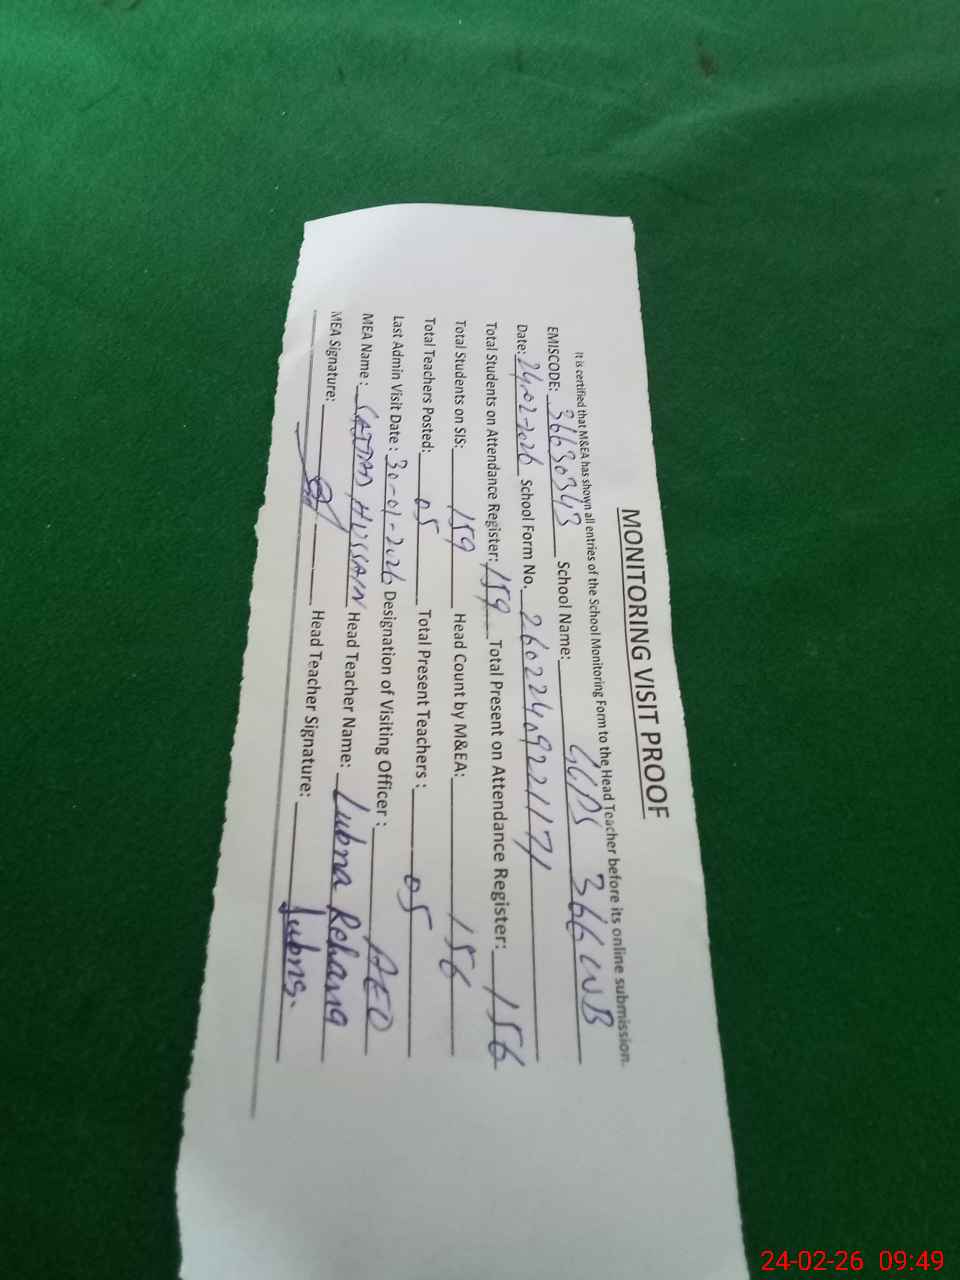 MONITORING VISIT PROOF
It is certified that M&EA has shown all entries of the School Monitoring Form to the Head Teacher before its online submission.
EMISCODE: 36630343 School Name: GGPS 366 WB
Date: 24-02-2026 School Form No. 26022409221171
Total Students on Attendance Register: 159 Total Present on Attendance Register: 156
Total Students on SIS: 159 Head Count by M&EA: 156
Total Teachers Posted: 05 Total Present Teachers : 05
Last Admin Visit Date : 30-01-2026 Designation of Visiting Officer : AEO
MEA Name : SAJJAD HUSSAIN Head Teacher Name: Lubna Rehana
MEA Signature: Head Teacher Signature: Lubna.
24-02-26 09:49